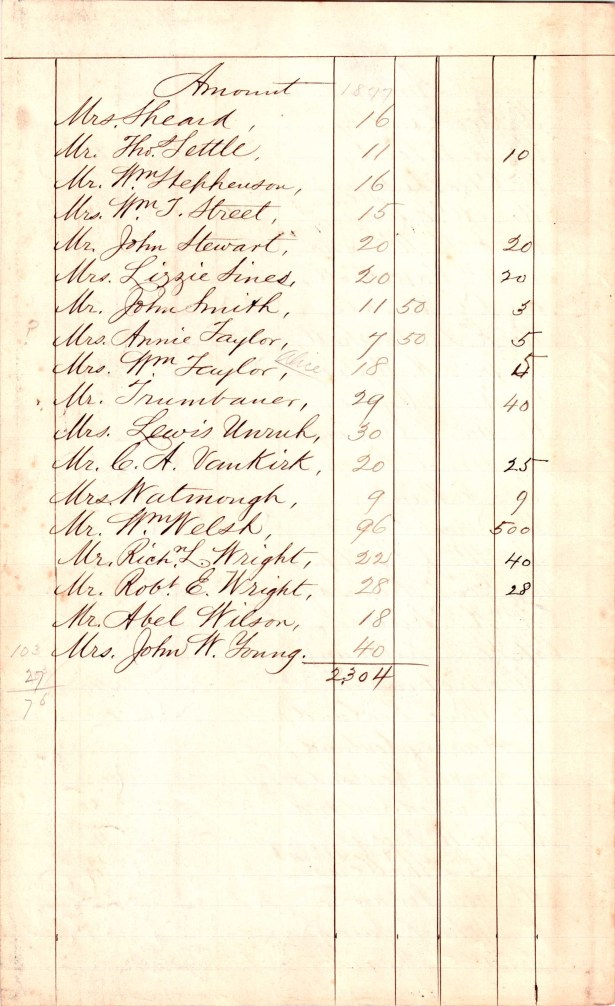 Amount 1877
Mrs. Sheard, 16
Mr. Tho.s Settle, 11 10
Mr. Wm Stephenson, 16
Mrs. Wm T. Street, 15
Mr. John Stewart, 20 20
Mrs. Lizzie Sines, 20 20
Mr. John Smith, 11 50 3
Mrs. Annie Taylor, 7 50 5
Mrs. Wm Taylor, 18 5
Mr. Trumbauer, 29 40
Mrs. Lewis Unruh, 30
Mr. C. A. VanKirk, 20 25
Mrs Watmough, 9 9
Mr. Wm Welsh, 96 500
Mr. Richd. L. Wright, 22 40
Mr. Robt E. Wright, 28 28
Mr. Abel Wilson, 18
103 Mrs. John W. Young. 40
27 2304
76